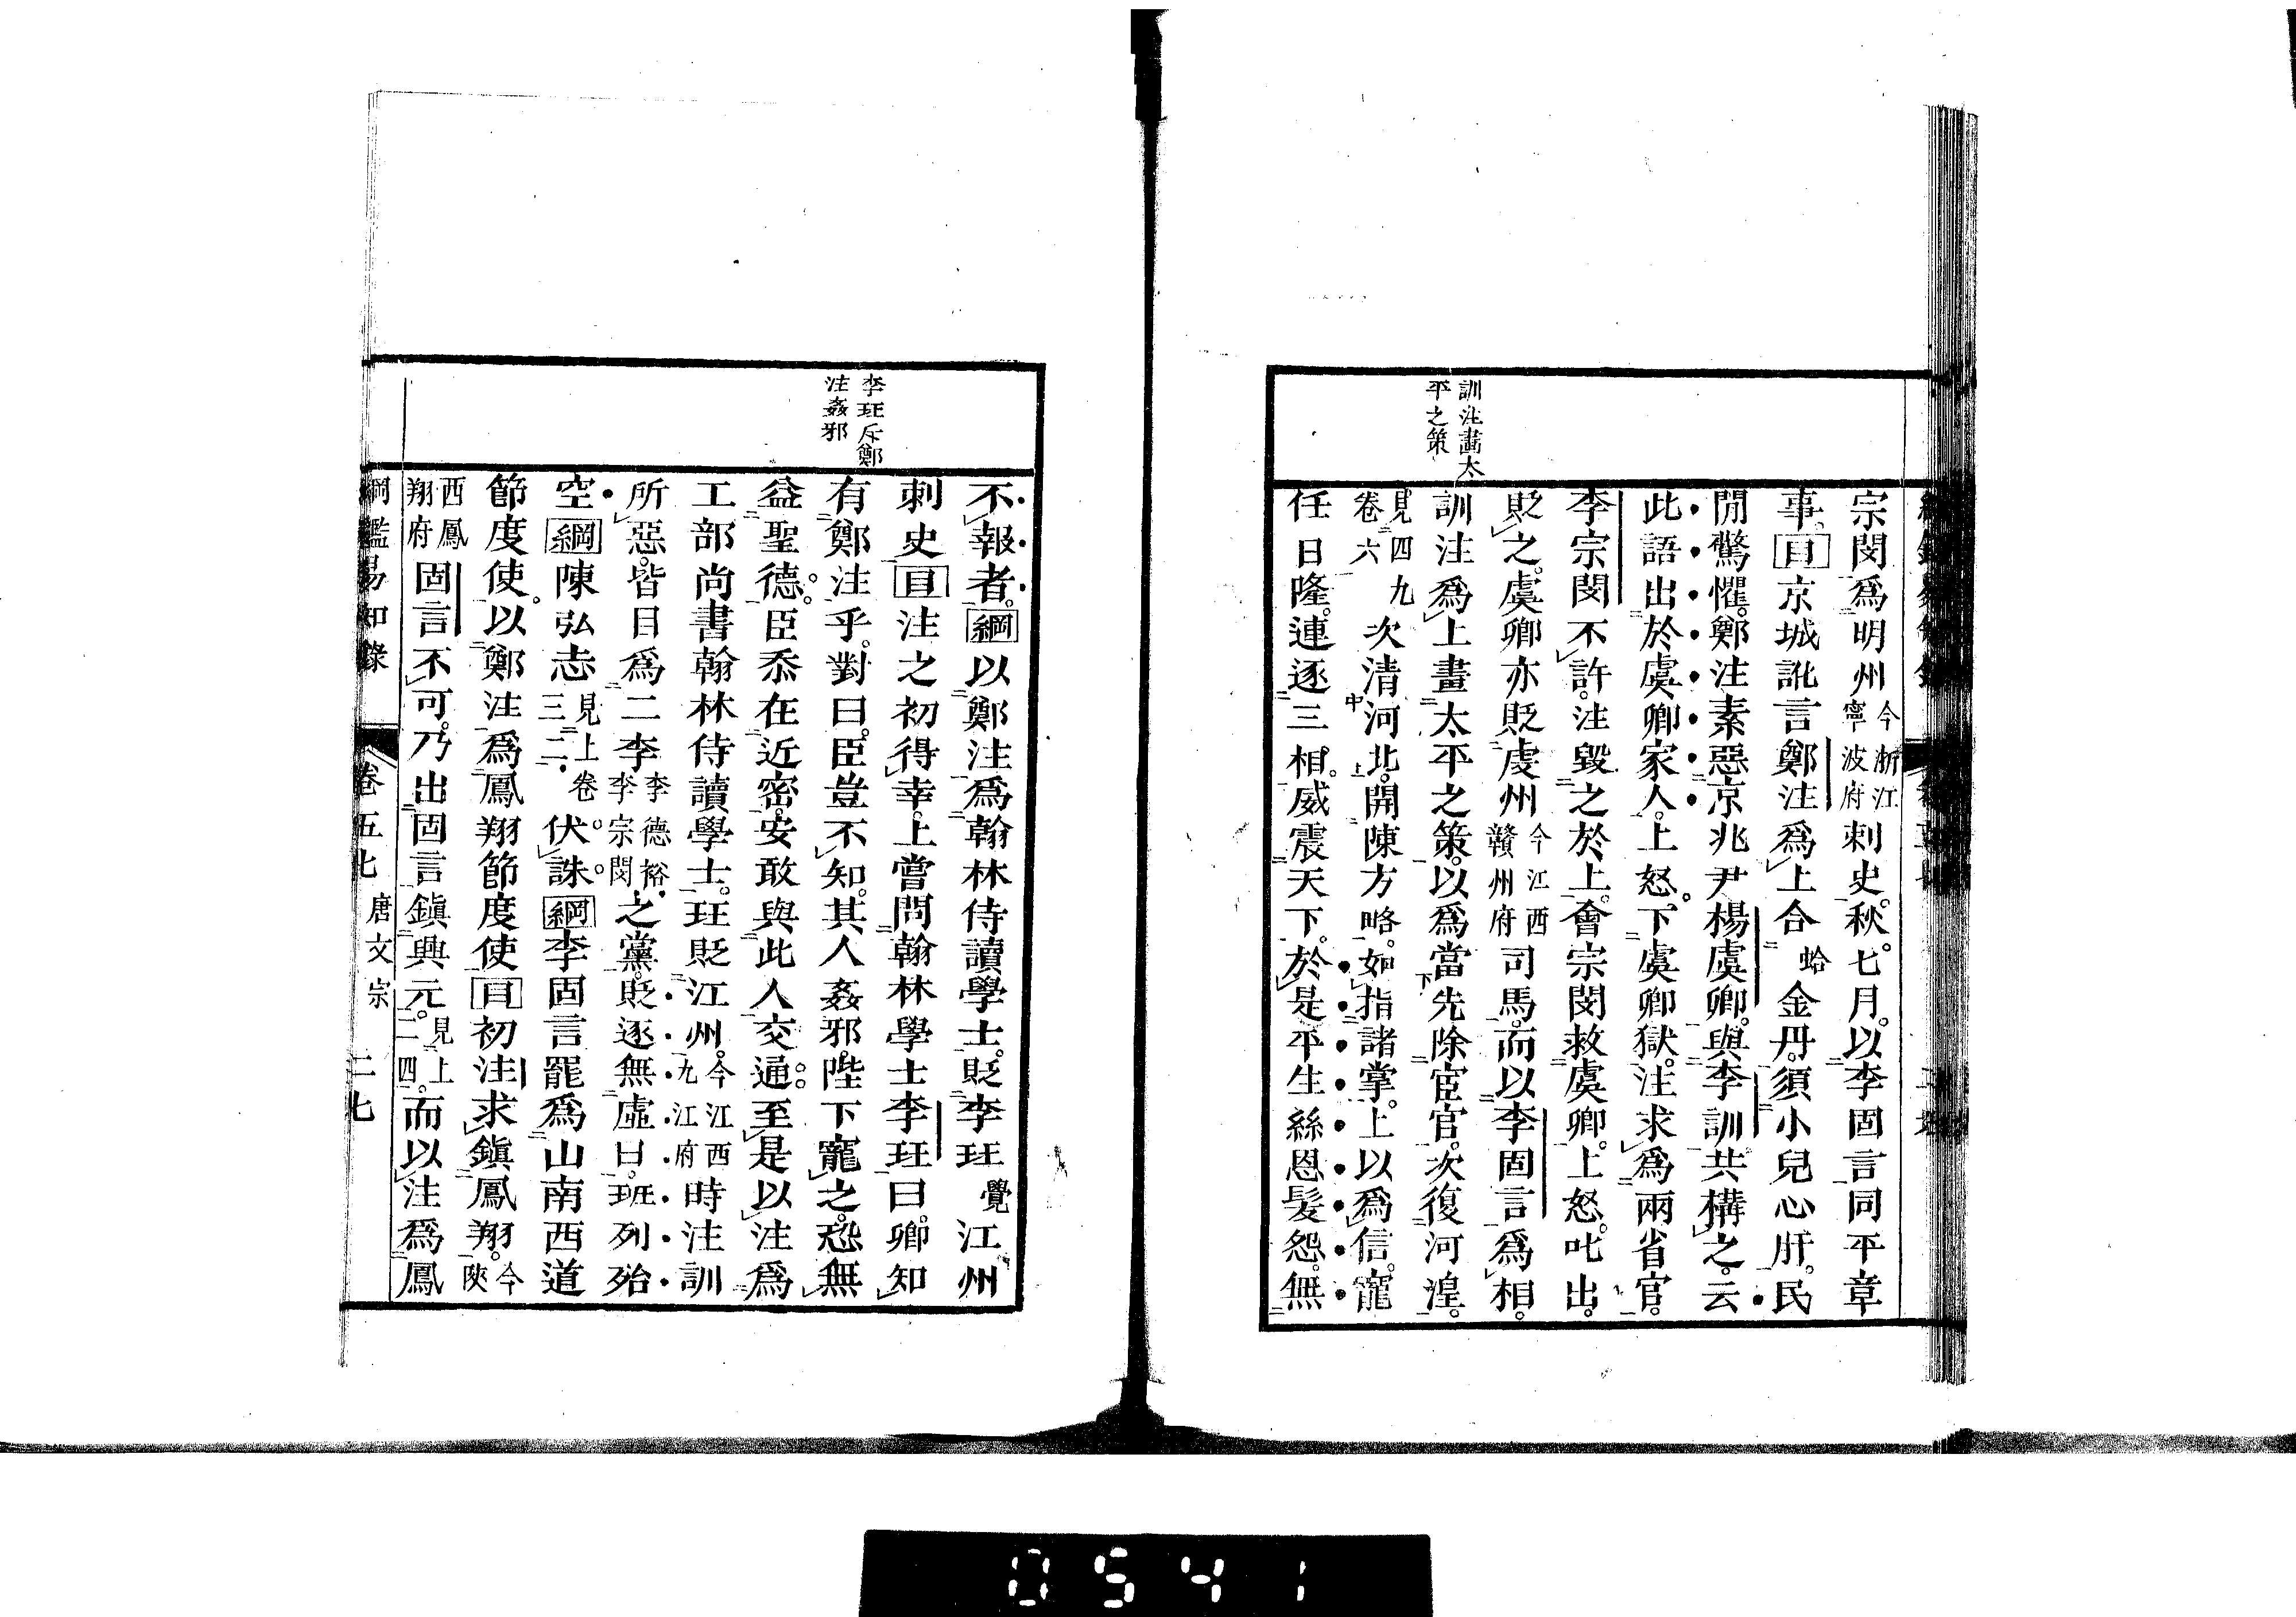 訓注畵太
平之策
宗閔爲明州今浙江寧波府刺史。秋。七月。以李固言同平章
事。目京城訛言鄭注爲上合蛤金丹。須小兒心肝。民
閒驚懼。鄭注素惡京兆尹楊虞卿。與李訓共構之。云
此語出於虞卿家人。上怒。下虞卿獄。注求爲兩省官。
李宗閔不許。注毀之於上。會宗閔救虞卿。上怒。叱出。
貶之。虞卿亦貶虔州今江西贛州府司馬。而以李固言爲相。
訓注爲上畫太平之策。以爲當先除宦官。次復河湟。
見四九卷六次清河北。開陳方略。如指諸掌。上以爲信。寵
任日隆。連逐三相。威震天下。於是平生絲恩髮怨。無
李珏斥鄭
注姦邪
不報者。綱以鄭注爲翰林侍讀學士。貶李珏覺江州
刺史目注之初得幸。上嘗問翰林學士李珏曰。卿知
有鄭注乎。對曰。臣豈不知。其人姦邪。陛下寵之。恐無
益聖德。臣忝在近密。安敢與此人交通。至是以注爲
工部尚書翰林侍讀學士。珏貶江州。今江西九江府時注訓
所惡。皆目爲二李李德裕李宗閔之黨。貶逐無虛日。班列殆
空。綱陳弘志見上卷三二。伏誅。綱李固言罷爲山南西道
節度使。以鄭注爲鳳翔節度使目初注求鎭鳳翔。今陝
西鳳翔府固言不可。乃出固言鎭興元。見上二四。而以注爲鳳
綱鑑易知錄
卷五七
唐文宗
二七
0541